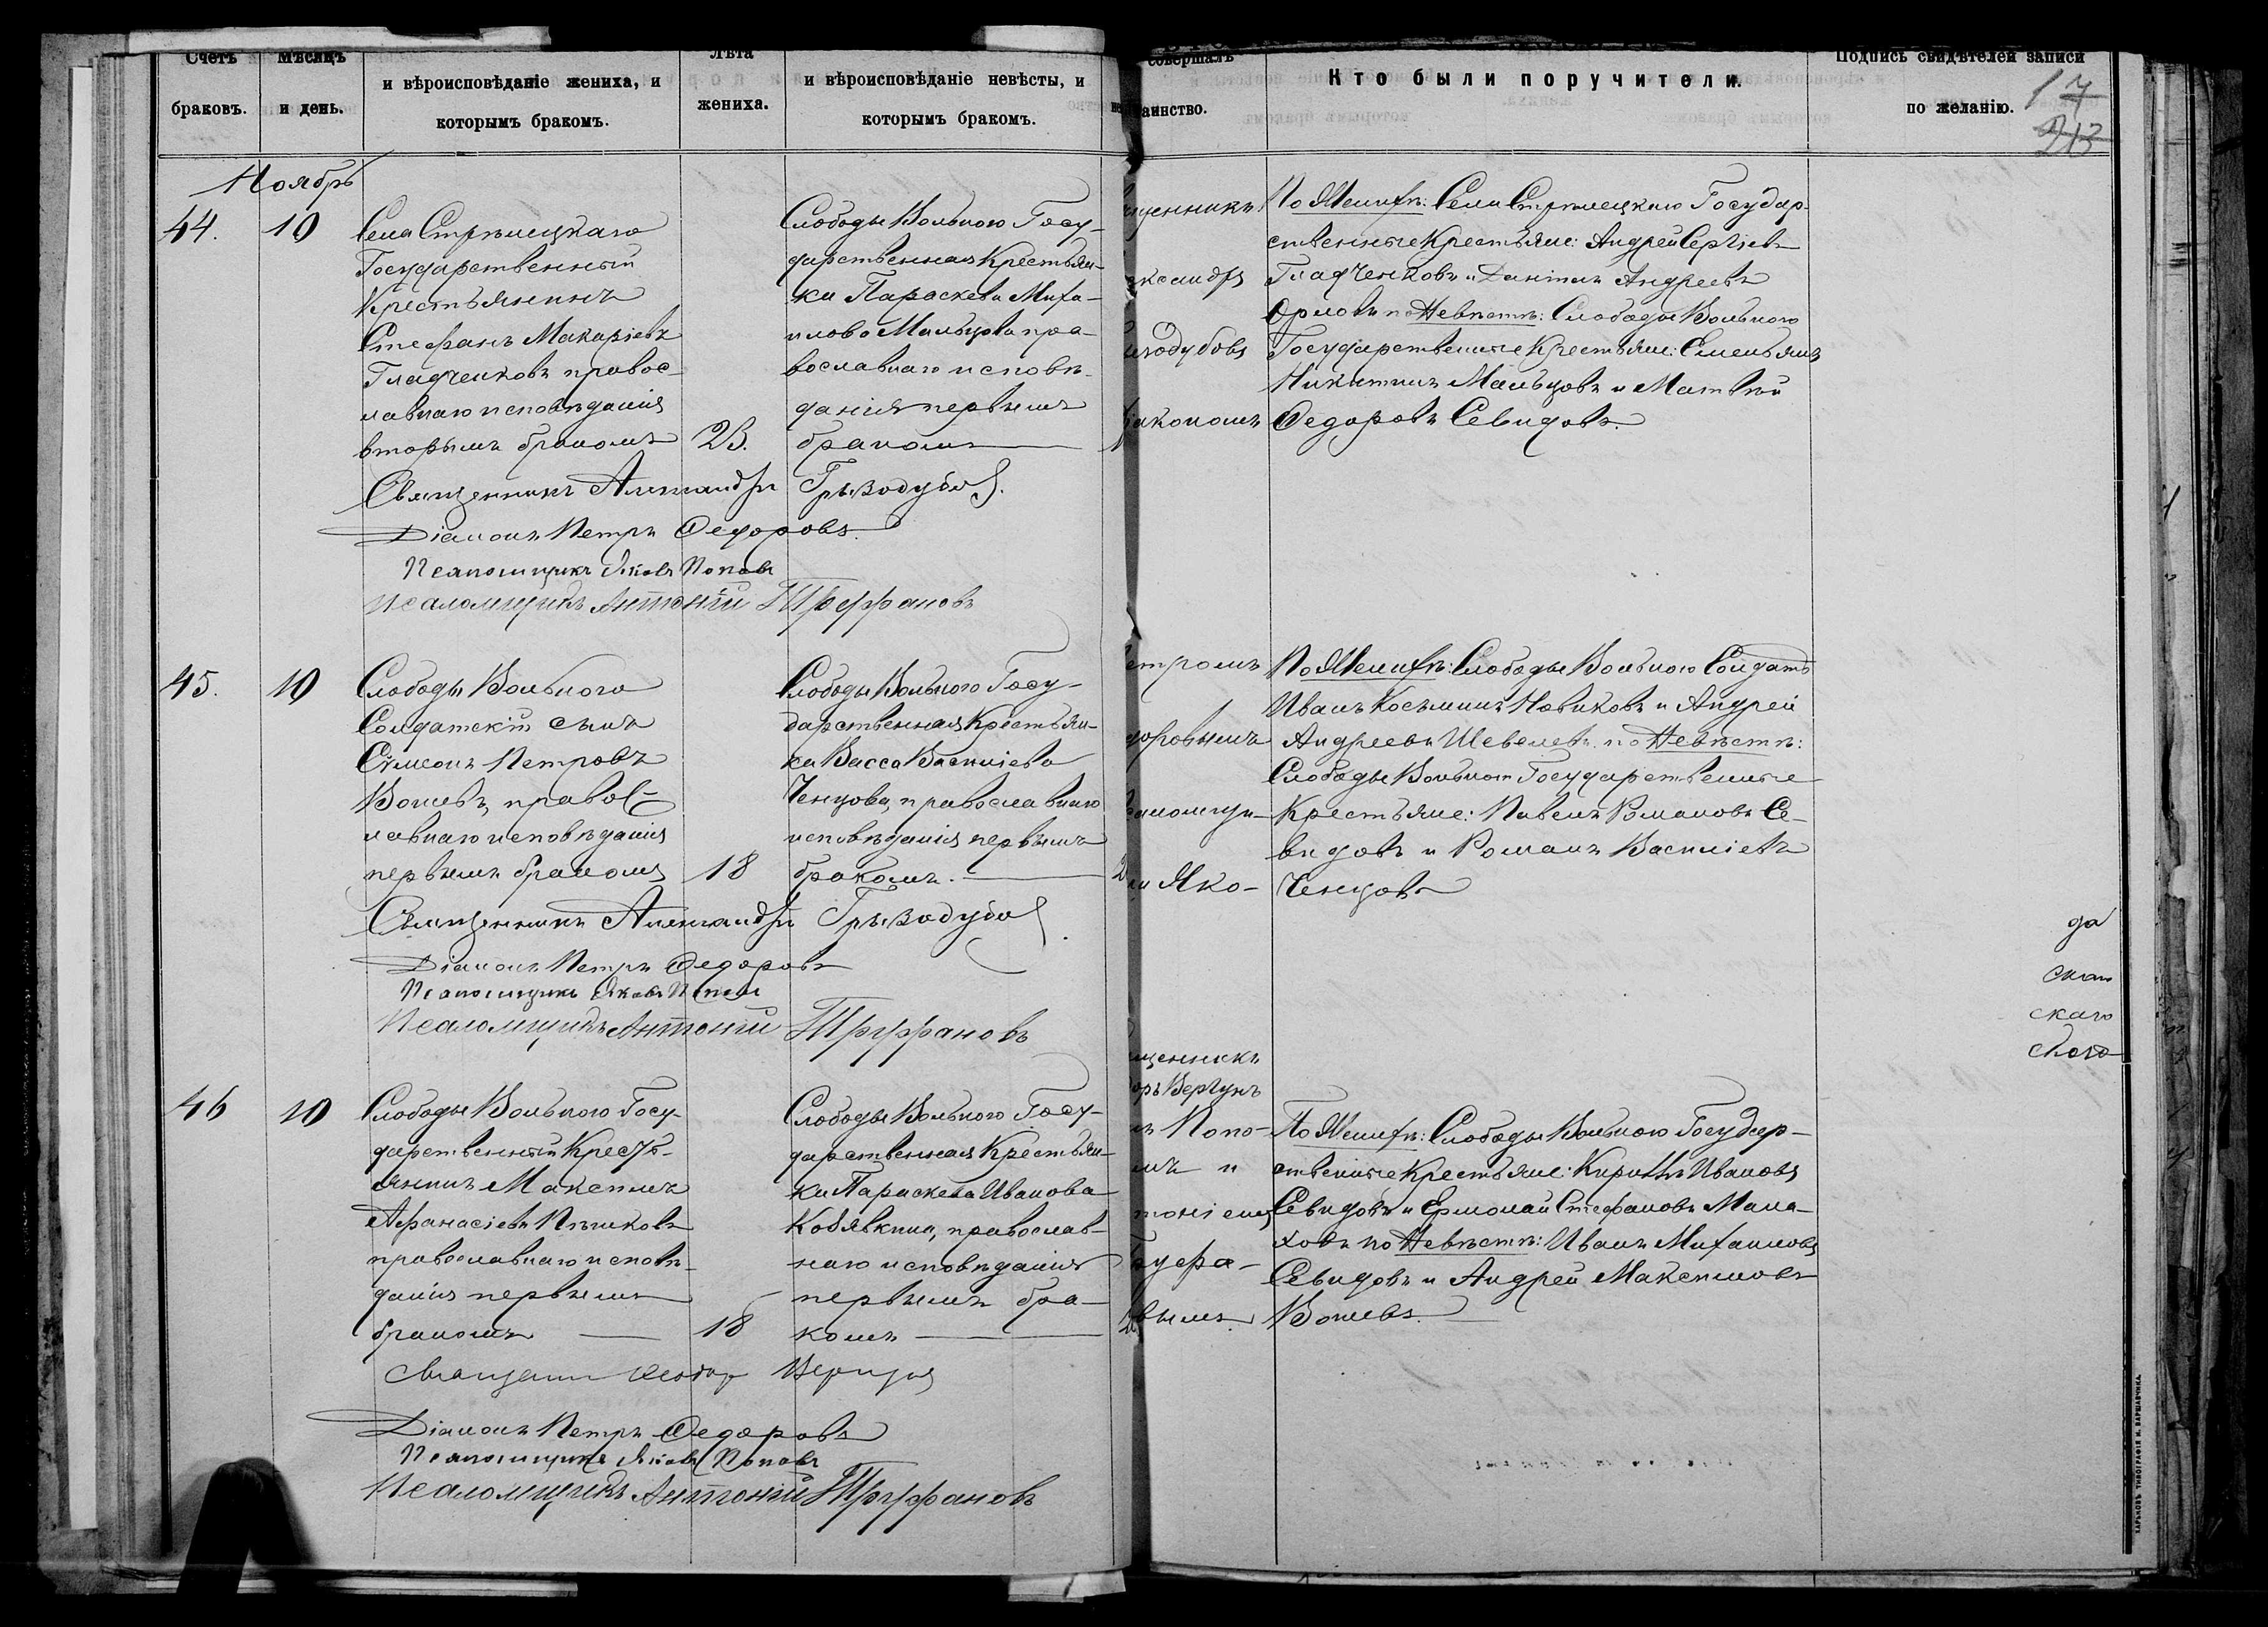 Счетъ
браковъ.
Мѣсяцъ
и день.
и вѣроисповѣданіе жениха, и
которымъ бракомъ.
Лѣта
жениха.
и вѣроисповѣданіе невѣсты, и
которымъ бракомъ.
совершалъ
таинство.
Кто были поручители.
Подпись свидѣтелей записи
по желанію.
17
213
Ноябрь
44.
10
Села Стрѣлецкаго
Государственный
Крестьянинъ
Стефанъ Макаріевъ
Гладченковъ правос-
лавнаго исповѣданія
вторымъ бракомъ
23.
Слободы Вольного Госу-
дарственная Крестьян-
ка Параскева Миха-
илова Мальцова пра-
вославнаго исповѣ-
данія первымъ
бракомъ
щенникъ
ександръ
ызодубовъ
іакономъ
По Женихѣ: Села Стрѣлецкаго Государ-
ственные Крестьяне: Андрей Сергіевъ
Гладченковъ и Данiилъ Андреевъ
Орловъ по Невѣстѣ: Слободы Вольного
Государственные Крестьяне: Емельянъ
Никитинъ Мальцовъ и Матвѣй
Федоровъ Севидовъ.
Священникъ Александръ Грызодубовъ.
Діаконъ Петръ Федоровъ.
Псаломщикъ Яковъ Поповъ
Псаломщикъ Антоній Труфановъ
45.
10
Слободы Вольного
Солдатскій сынъ
Сѵмеонъ Петровъ
Вошевъ, правос-
лавнаго исповѣданія
первымъ бракомъ
18
Слободы Вольного Госу-
дарственная Крестьян-
ка Васса Василіева
Ченцова, православнаго
исповѣданія первымъ
бракомъ.
етромъ
доровымъ
саломщи-
ми Яко-
По Женихѣ: Слободы Вольного Солдатъ
Иванъ Косьминъ Новиковъ и Андрей
Андреевъ Шевелевъ по Невѣстѣ:
Слободы Вольного Государственные
Крестьяне: Павелъ Романовъ Се-
видовъ и Романъ Василіевъ
Ченцовъ
Священникъ Александръ Грызодубовъ.
Діаконъ Петръ Федоровъ
Псаломщикъ Яковъ Поповъ
Псаломщикъ Антоній Труфановъ
да
скаго
46
10
Слободы Вольного Госу-
дарственный Кресть-
янинъ Максимъ
Афанасіевъ Пѣшковъ
православнаго исповѣ-
данія первымъ
бракомъ
18
Слободы Вольного Госу-
дарственная Крестьян-
ка Параскева Иванова
Кобявкина, православ-
наго исповѣданія
первымъ бра-
комъ
щенникъ
оръ Вергунъ
ъ Попо-
мъ и
тоніемъ
руфа-
вымъ
По Женихѣ: Слободы Вольного Государ-
ственные Крестьяне: Кириллъ Ивановъ
Севидовъ и Ермолай Стефановъ Мала-
ховъ по Невѣстѣ: Иванъ Михаиловъ
Севидовъ и Андрей Максимовъ
Вошевъ.
Священникъ Феодоръ Вергунъ
Діаконъ Петръ Федоровъ
Псаломщикъ Яковъ Поповъ
Псаломщикъ Антоній Труфановъ
ХАРЬКОВЪ ТИПОГРАФІЯ И. ВАРШАВЧИКА.